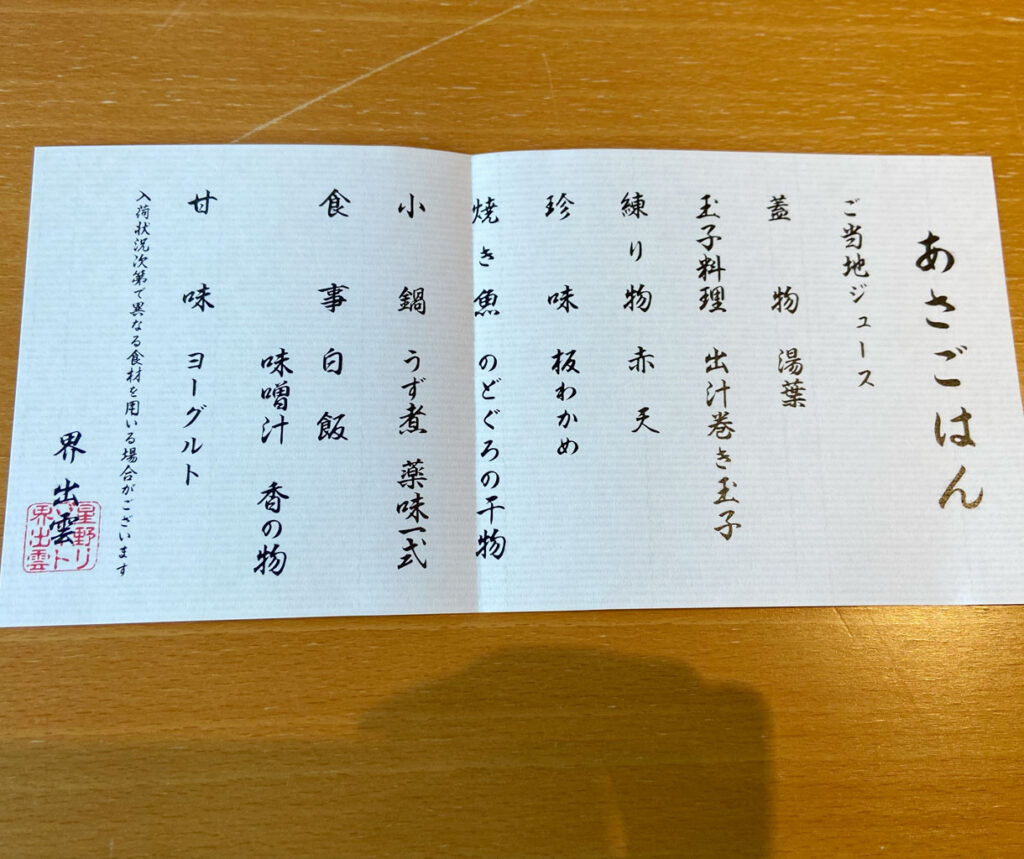 あさごはん
ご当地ジュース
蓋物 湯葉
玉子料理 出汁巻き玉子
練り物 赤天
珍味 板わかめ
焼き魚 のどぐろの干物
小鍋 うず煮 薬味一式
食事 白飯
味噌汁 香の物
甘味 ヨーグルト
入荷状況次第で異なる食材を用いる場合がございます
界 出雲
星野リ
ゾート
界出雲